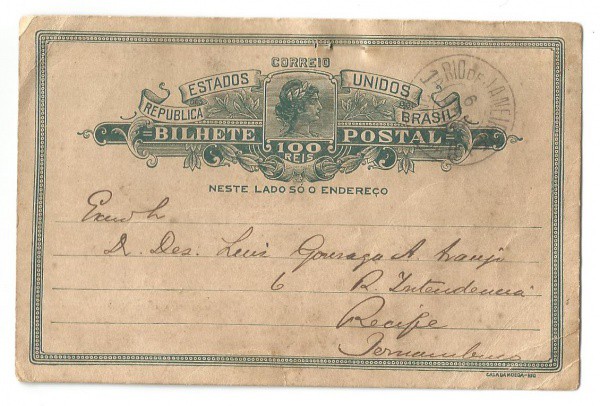 CORREIO
ESTADOS UNIDOS
REPUBLICA BRASIL
BILHETE POSTAL
100
REIS
NESTE LADO SÓ O ENDEREÇO
RIO DE JANEI
6
Dr. Des. Luis Gonzaga A. Araujo
6 R. Intendencia
Recife
Pernambuco
CASA DA MOEDA-RIO